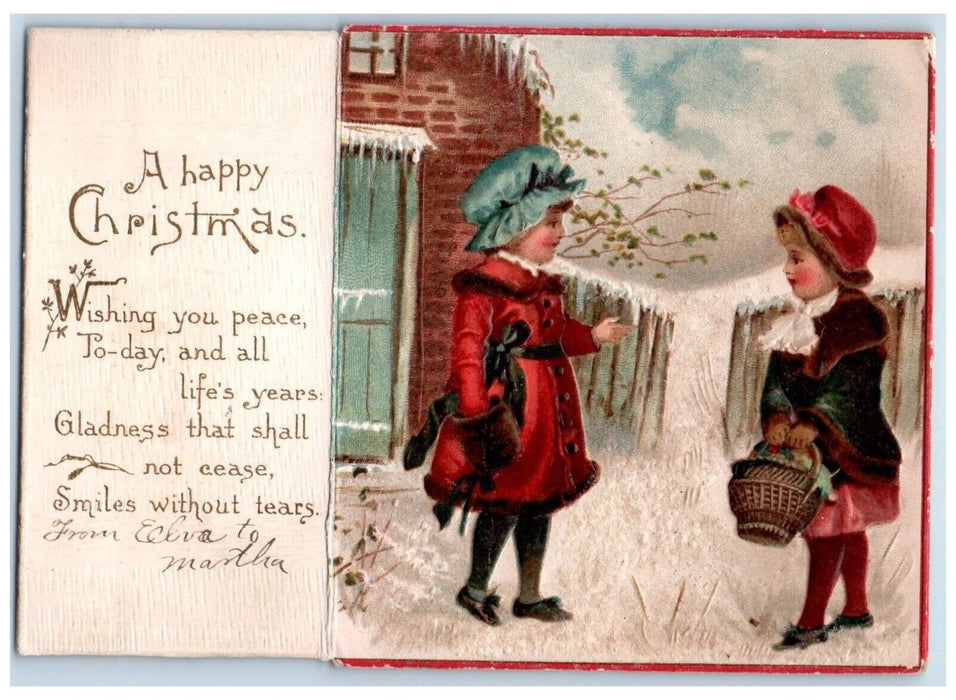 A happy
Christmas.
Wishing you peace,
To-day, and all
life's years:
Gladness that shall
not cease,
Smiles without tears.
From Elva to
martha